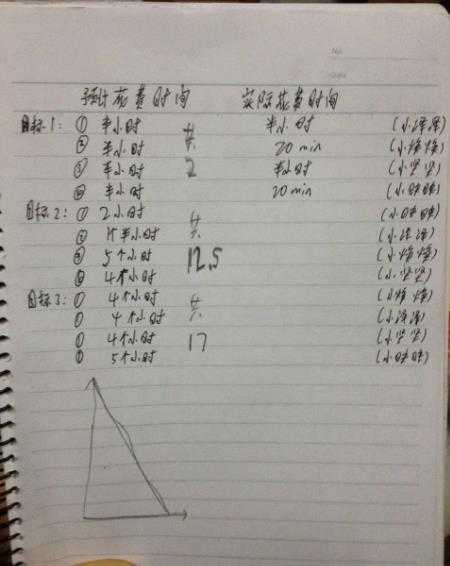 预计花费时间 实际花费时间
目标1: ① 半小时 共 半小时 (小泽泽)
② 半小时 共 20 min
③ 半小时 2 半小时 (小坚坚)
④ 半小时 20 min (小昧昧)
目标2: ① 2小时 共 (小昧昧)
② 1个半小时 共 (小泽泽)
③ 5个小时 12.5
④ 4个小时 (小坚坚)
目标3: ① 4个小时 共
① 4个小时 共 (小泽泽)
① 4个小时 17 (小坚坚)
① 5个小时 (小昧昧)